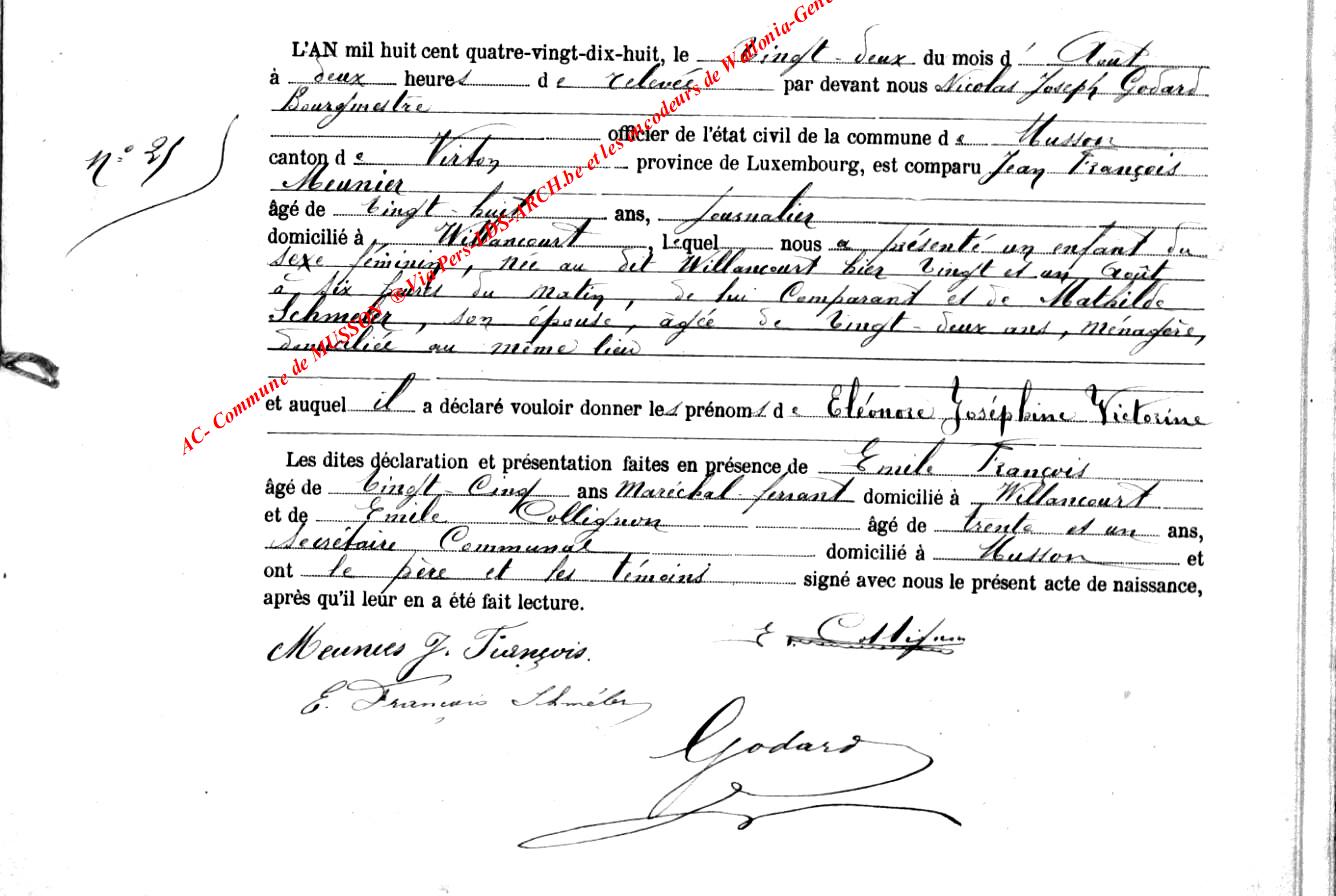 L'AN mil huit cent quatre-vingt-dix-huit, le Vingt-deux du mois d' Août
à deux heures de relevée par devant nous Nicolas Joseph Godard
Bourgmestre
officier de l'état civil de la commune de Musson
canton de Virton province de Luxembourg, est comparu Jean François
Meunier
âgé de Vingt-huit ans, Journalier
domicilié à Willancourt, lequel nous a présenté un enfant du
sexe féminin, née au dit Willancourt hier Vingt et un Août
à six heures du matin, de lui Comparant et de Mathilde
Schmeler, son épouse, âgée de Vingt-deux ans, ménagère,
domiciliée au même lieu
et auquel il a déclaré vouloir donner les prénoms de Eléonore Joséphine Victorine
Les dites déclaration et présentation faites en présence de Emile François
âgé de Vingt-Cinq ans Maréchal-ferrant domicilié à Willancourt
et de Emile Collignon âgé de trente et un ans,
Secrétaire Communal domicilié à Musson et
ont le père et les témoins signé avec nous le présent acte de naissance,
après qu'il leur en a été fait lecture.
N°
Meunier J. François.
E. Collignon
E. François Schméler
Godard
AC- Commune de MUSSON ®Via Pers-LDS-ARCH.be et les encodeurs de Wallonia-Gen